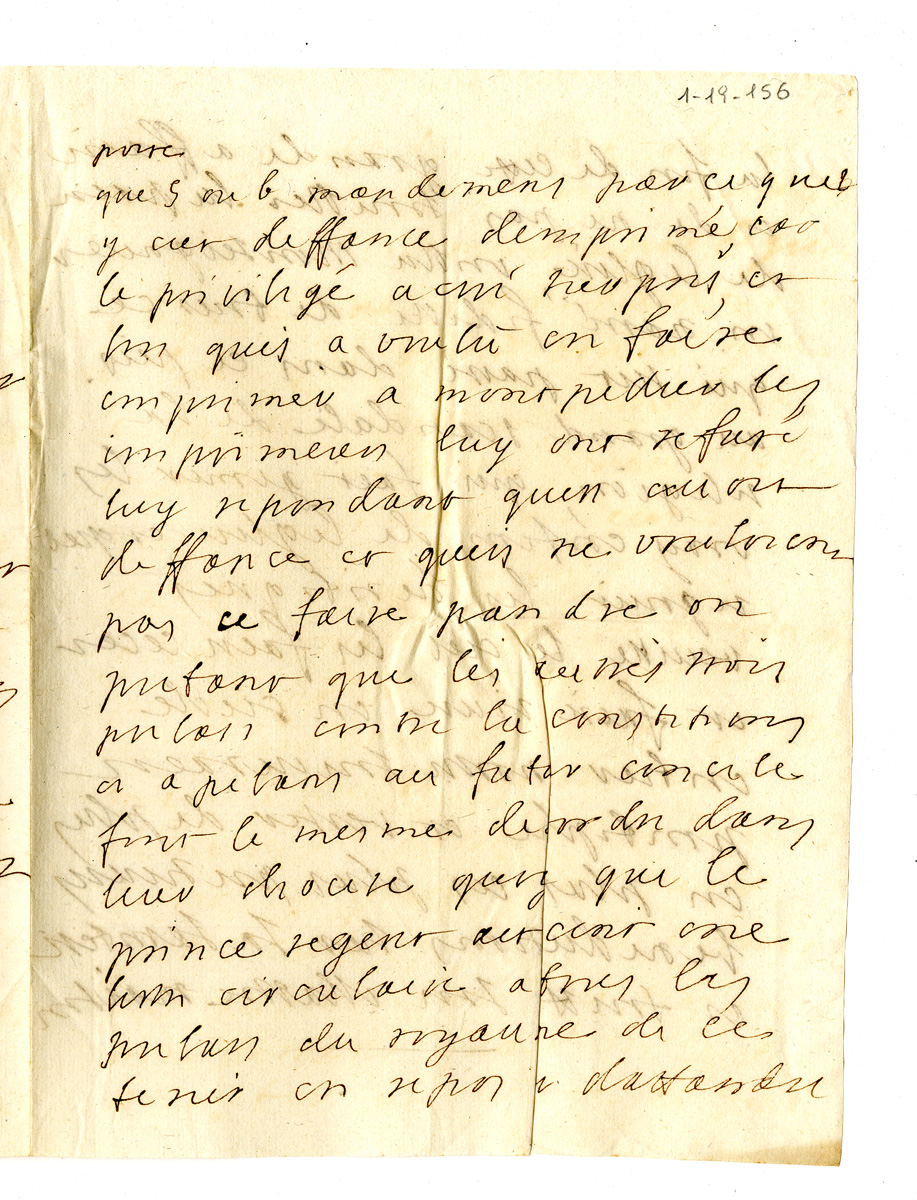 1-19-156
que 5 ou 6 mandemens parce quil
y aier deffance demprimé car
le privilegé a etté repris et
lon quis a voulû en faire
emprimer a monpellier les
imprimeurs luy ont refusé
luy repondant quen avoit
deffance et queis ne vouloient
pas ce faire pandre on
pretant que les autres trois
prelats contre la constititions
et apelans au futur concile
font le mesme desordre dans
leur diocese quoy que le
prince regent aet ecrit une
lettre circulaire a tous les
prelats du royaume de ce
tenir en repos e dattandre